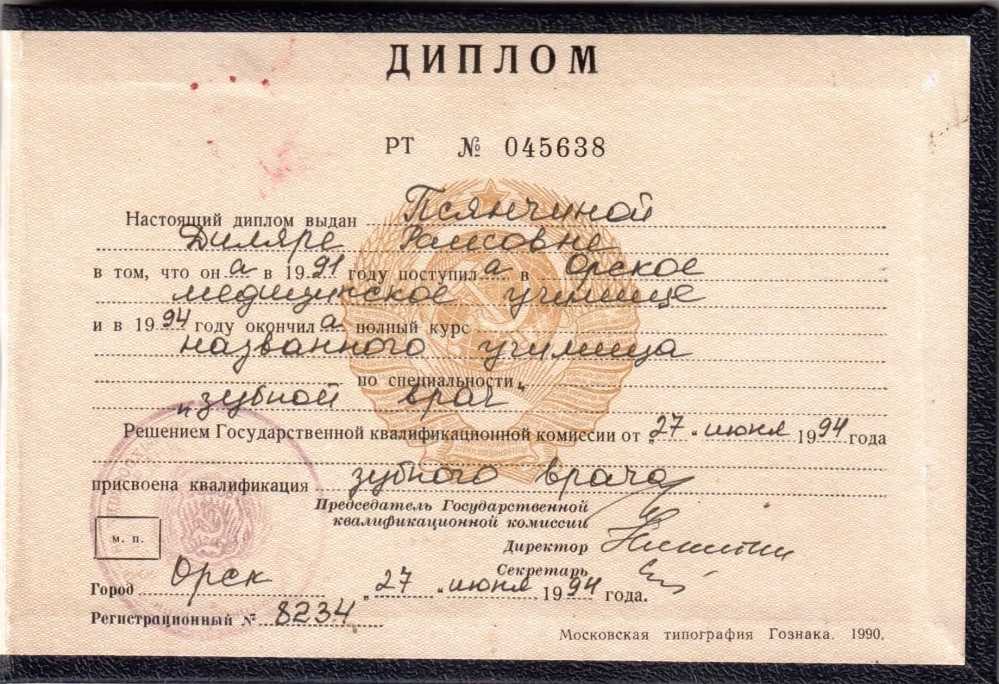 ДИПЛОМ
РТ № 045638
Настоящий диплом выдан Псянчиной
Диляре Раисовне
в том, что он а в 19 91 году поступил а в Орское
медицинское училище
и в 19 94 году окончил а полный курс
названного училища
по специальности
"зубной врач"
Решением Государственной квалификационной комиссии от „27" июня 19 94 года
присвоена квалификация зубного врача
Председатель Государственной
квалификационной комиссии
Директор
Секретарь
м. п.
Город Орск „27" июня 19 94 года.
Регистрационный № 8234
Московская типография Гознака. 1990.